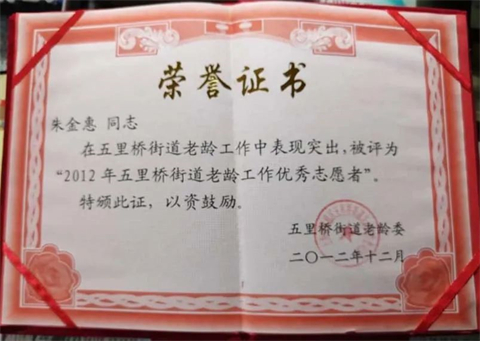 荣誉证书
朱金惠 同志
在五里桥街道老龄工作中表现突出，被评为
“2012年五里桥街道老龄工作优秀志愿者”。
特颁此证，以资鼓励。
五里桥街道老龄委
二〇一二年十二月